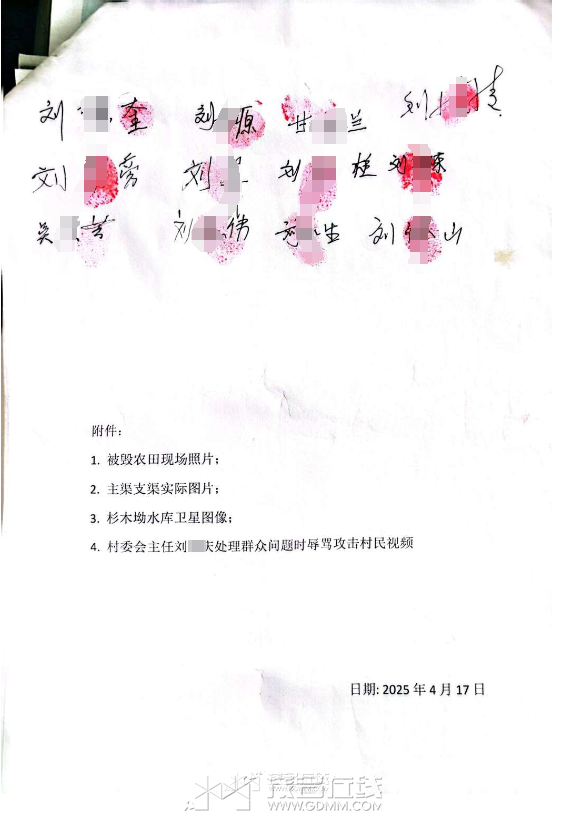 刘 奎 刘 源 甘 兰 刘 清
刘 刘 刘 桂 刘
吴 芳 刘 伟 生 刘 山
附件：
1. 被毁农田现场照片；
2. 主渠支渠实际图片；
3. 杉木坳水库卫星图像；
4. 村委会主任刘 庆处理群众问题时辱骂攻击村民视频
日期: 2025 年 4 月 17 日
茂名在线
WWW.GDMM.COM